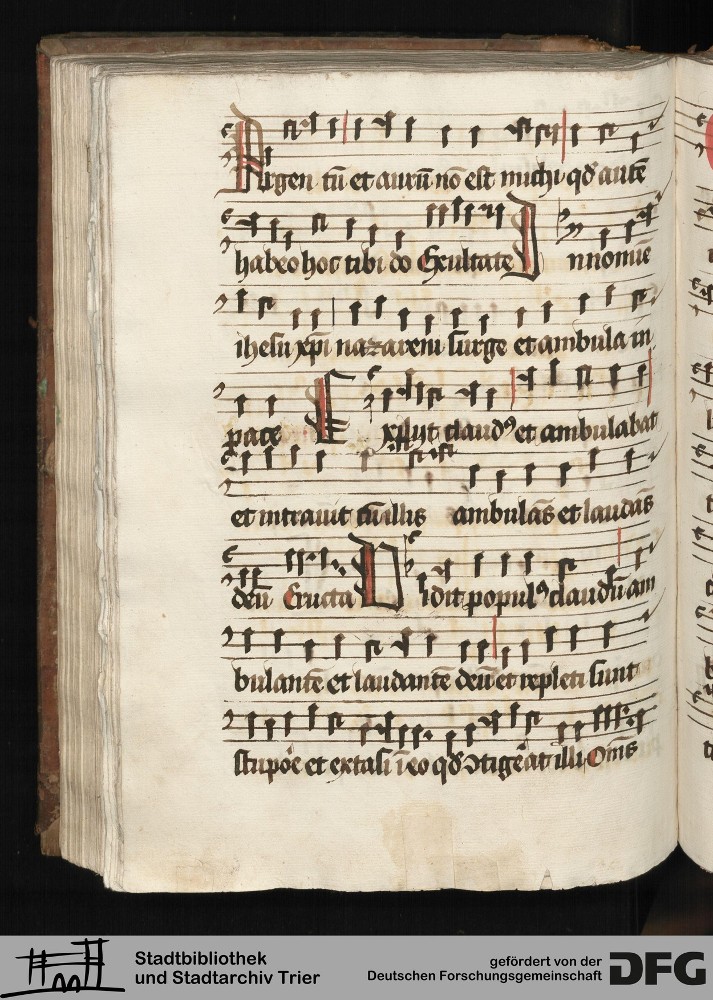 Argen tū et aurū nō est michi qd̄ autē
habeo hoc tibi do Exultate Jnnomiē
ihesu xpī nazareni surge et ambula in
pace Exsilijt claudꝰ et ambulabat
et intrauit cū illis ambulās et laudās
deū Eructa Uidit populꝰ claudū am
bulantē et laudantē deū et repleti sunt
stupoē et extasi ī eo qd̄ ɔtigēat illi Om̄s
Stadtbibliothek
und Stadtarchiv Trier
gefördert von der
Deutschen Forschungsgemeinschaft
DFG